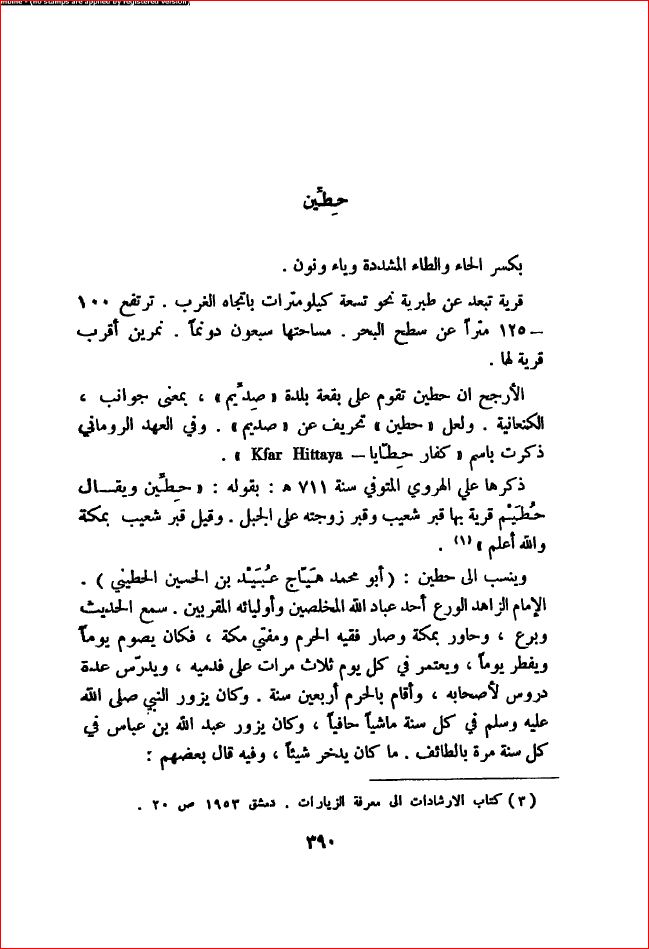 mbine - (no stamps are applied by registered version)
حِطِّين
بكسر الحاء والطاء المشددة وياء ونون .
قرية تبعد عن طبرية نحو تسعة كيلومترات باتجاه الغرب . ترتفع ١٠٠
– ١٢٥ متراً عن سطح البحر . مساحتها سبعون دونماً . نمرين أقرب
قرية لها .
الأرجح ان حطين تقوم على بقعة بلدة « صِدِّيم » ، بمعنى جوانب ،
الكنعانية . ولعل « حطين » تحريف عن « صديم » . وفي العهد الروماني
ذكرت باسم « كفار حِطّايا – Kfar Hittaya » .
ذكرها علي الهروي المتوفي سنة ٧١١ ه : بقوله : « حِطِّين ويقــال
حُطَيْم قرية بها قبر شعيب وقبر زوجته على الجبل . وقيل قبر شعيب بمكة
والله أعلم » (١) .
وينسب الى حطين : ( أبو محمد هَيّاج عُبَيْد بن الحسين الحطيني ) .
الإمام الزاهد الورع أحد عباد الله المخلصين وأوليائه المقربين . سمع الحديث
وبرع ، وحاور بمكة وصار فقيه الحرم ومفتي مكة ، فكان يصوم يوماً
ويفطر يوماً ، ويعتمر في كل يوم ثلاث مرات على قدميه ، ويدرّس عدة
دروس لأصحابه ، وأقام بالحرم أربعين سنة . وكان يزور النبي صلى الله
عليه وسلم في كل سنة ماشياً حافياً ، وكان يزور عبد الله بن عباس في
كل سنة مرة بالطائف . ما كان يدخر شيئاً ، وفيه قال بعضهم :
( ٣ ) كتاب الارشادات الى معرفة الزيارات . دمشق ١٩٥٣ ص ٢٠ .
٣٩٠